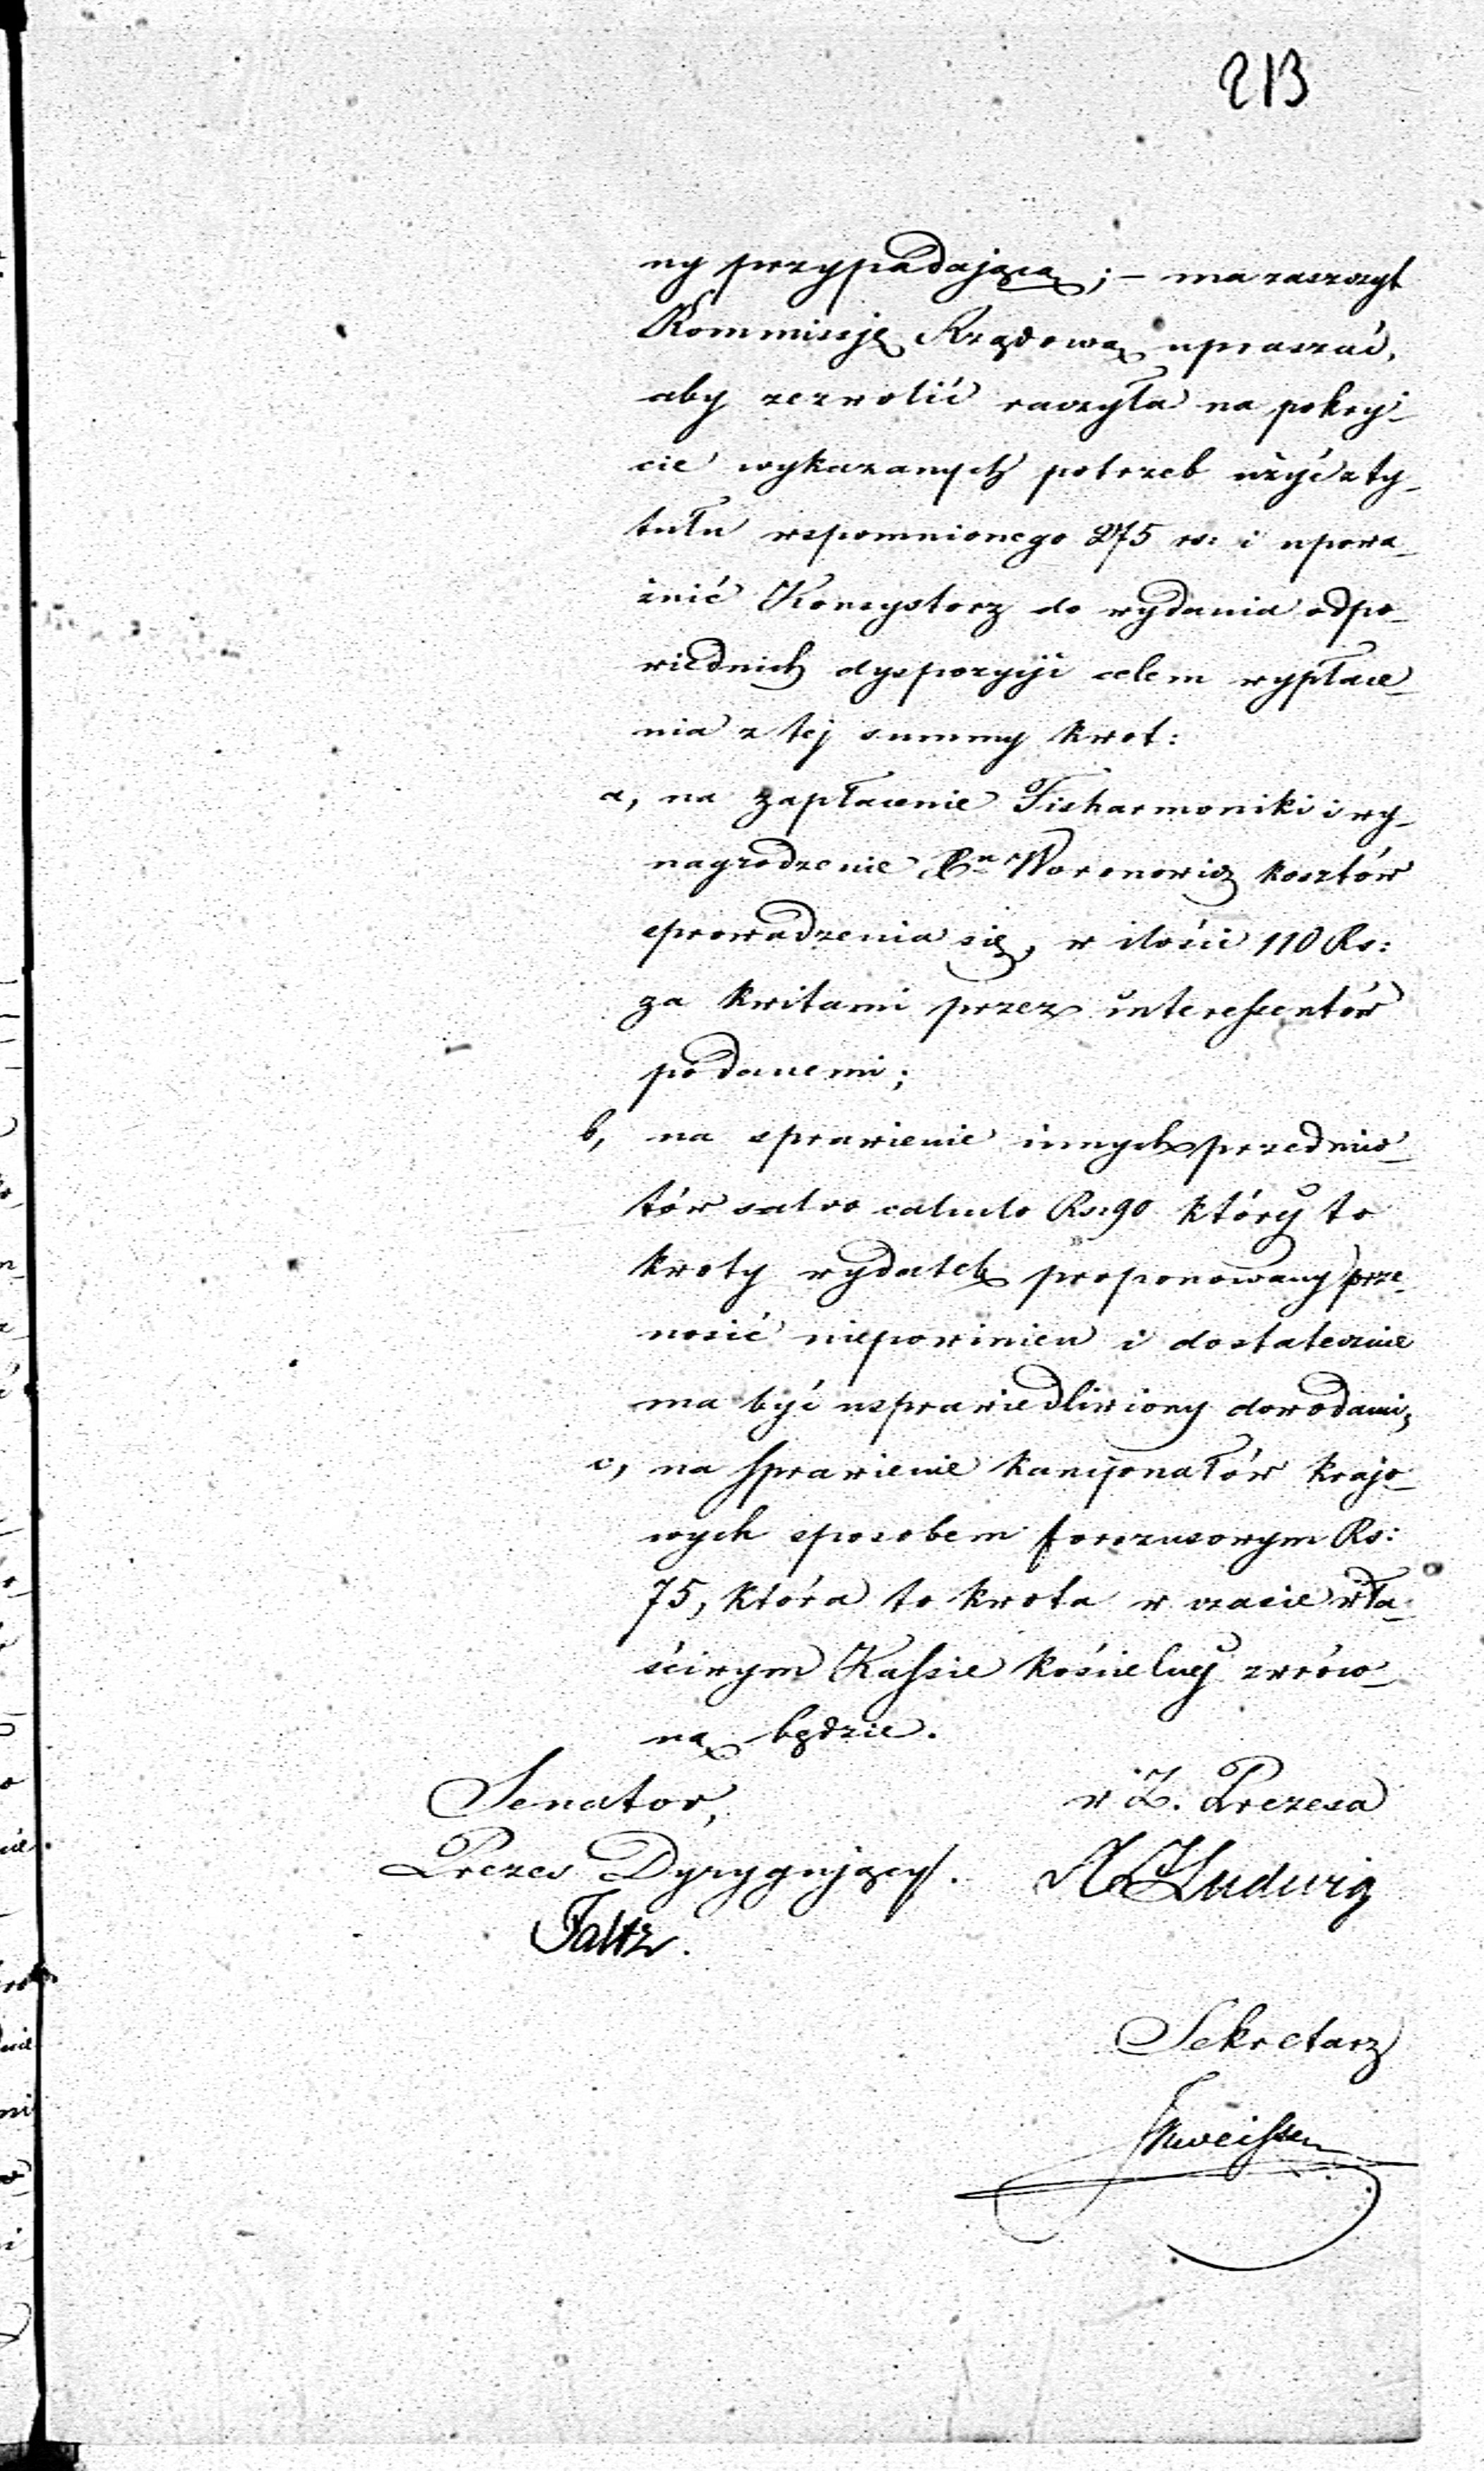 213
ny przypadającą; – ma zaszczyt
Kommissję Rządową upraszać,
aby zezwolić raczyła na pokry-
cie wykazanych potrzeb użyć z ty-
tułu wspomnionego 275 rs: i upowa-
żnić Konsystorz do wydania odpo-
wiednich dyspozycji celem wypłace-
nia z tej summy kwot:
a, na zapłacenie Fisharmoniki i wy-
nagrodzenie Woronowicz kosztów
sprowadzenia się, w ilości 110 Rs:
za kwitami przez interessentów
podanemi;
b, na sprawienie innych przedmio-
tów salvo calculo Rs: 90 któréj to
kwoty wydatek proponowany prze-
nosić niepowinien i dostatecznie
ma być usprawiedliwiony dowodami;
c, na sprawienie kancjonałów krajo-
wych sposobem forszusowym Rs:
75, która to kwota w czasie wła-
ściwym Kassie kościelnéj zwróco-
ną będzie.
Senator,
Prezes Dyrygujący.
Faltz.
w Z. Prezesa
Ludwig
Sekretarz